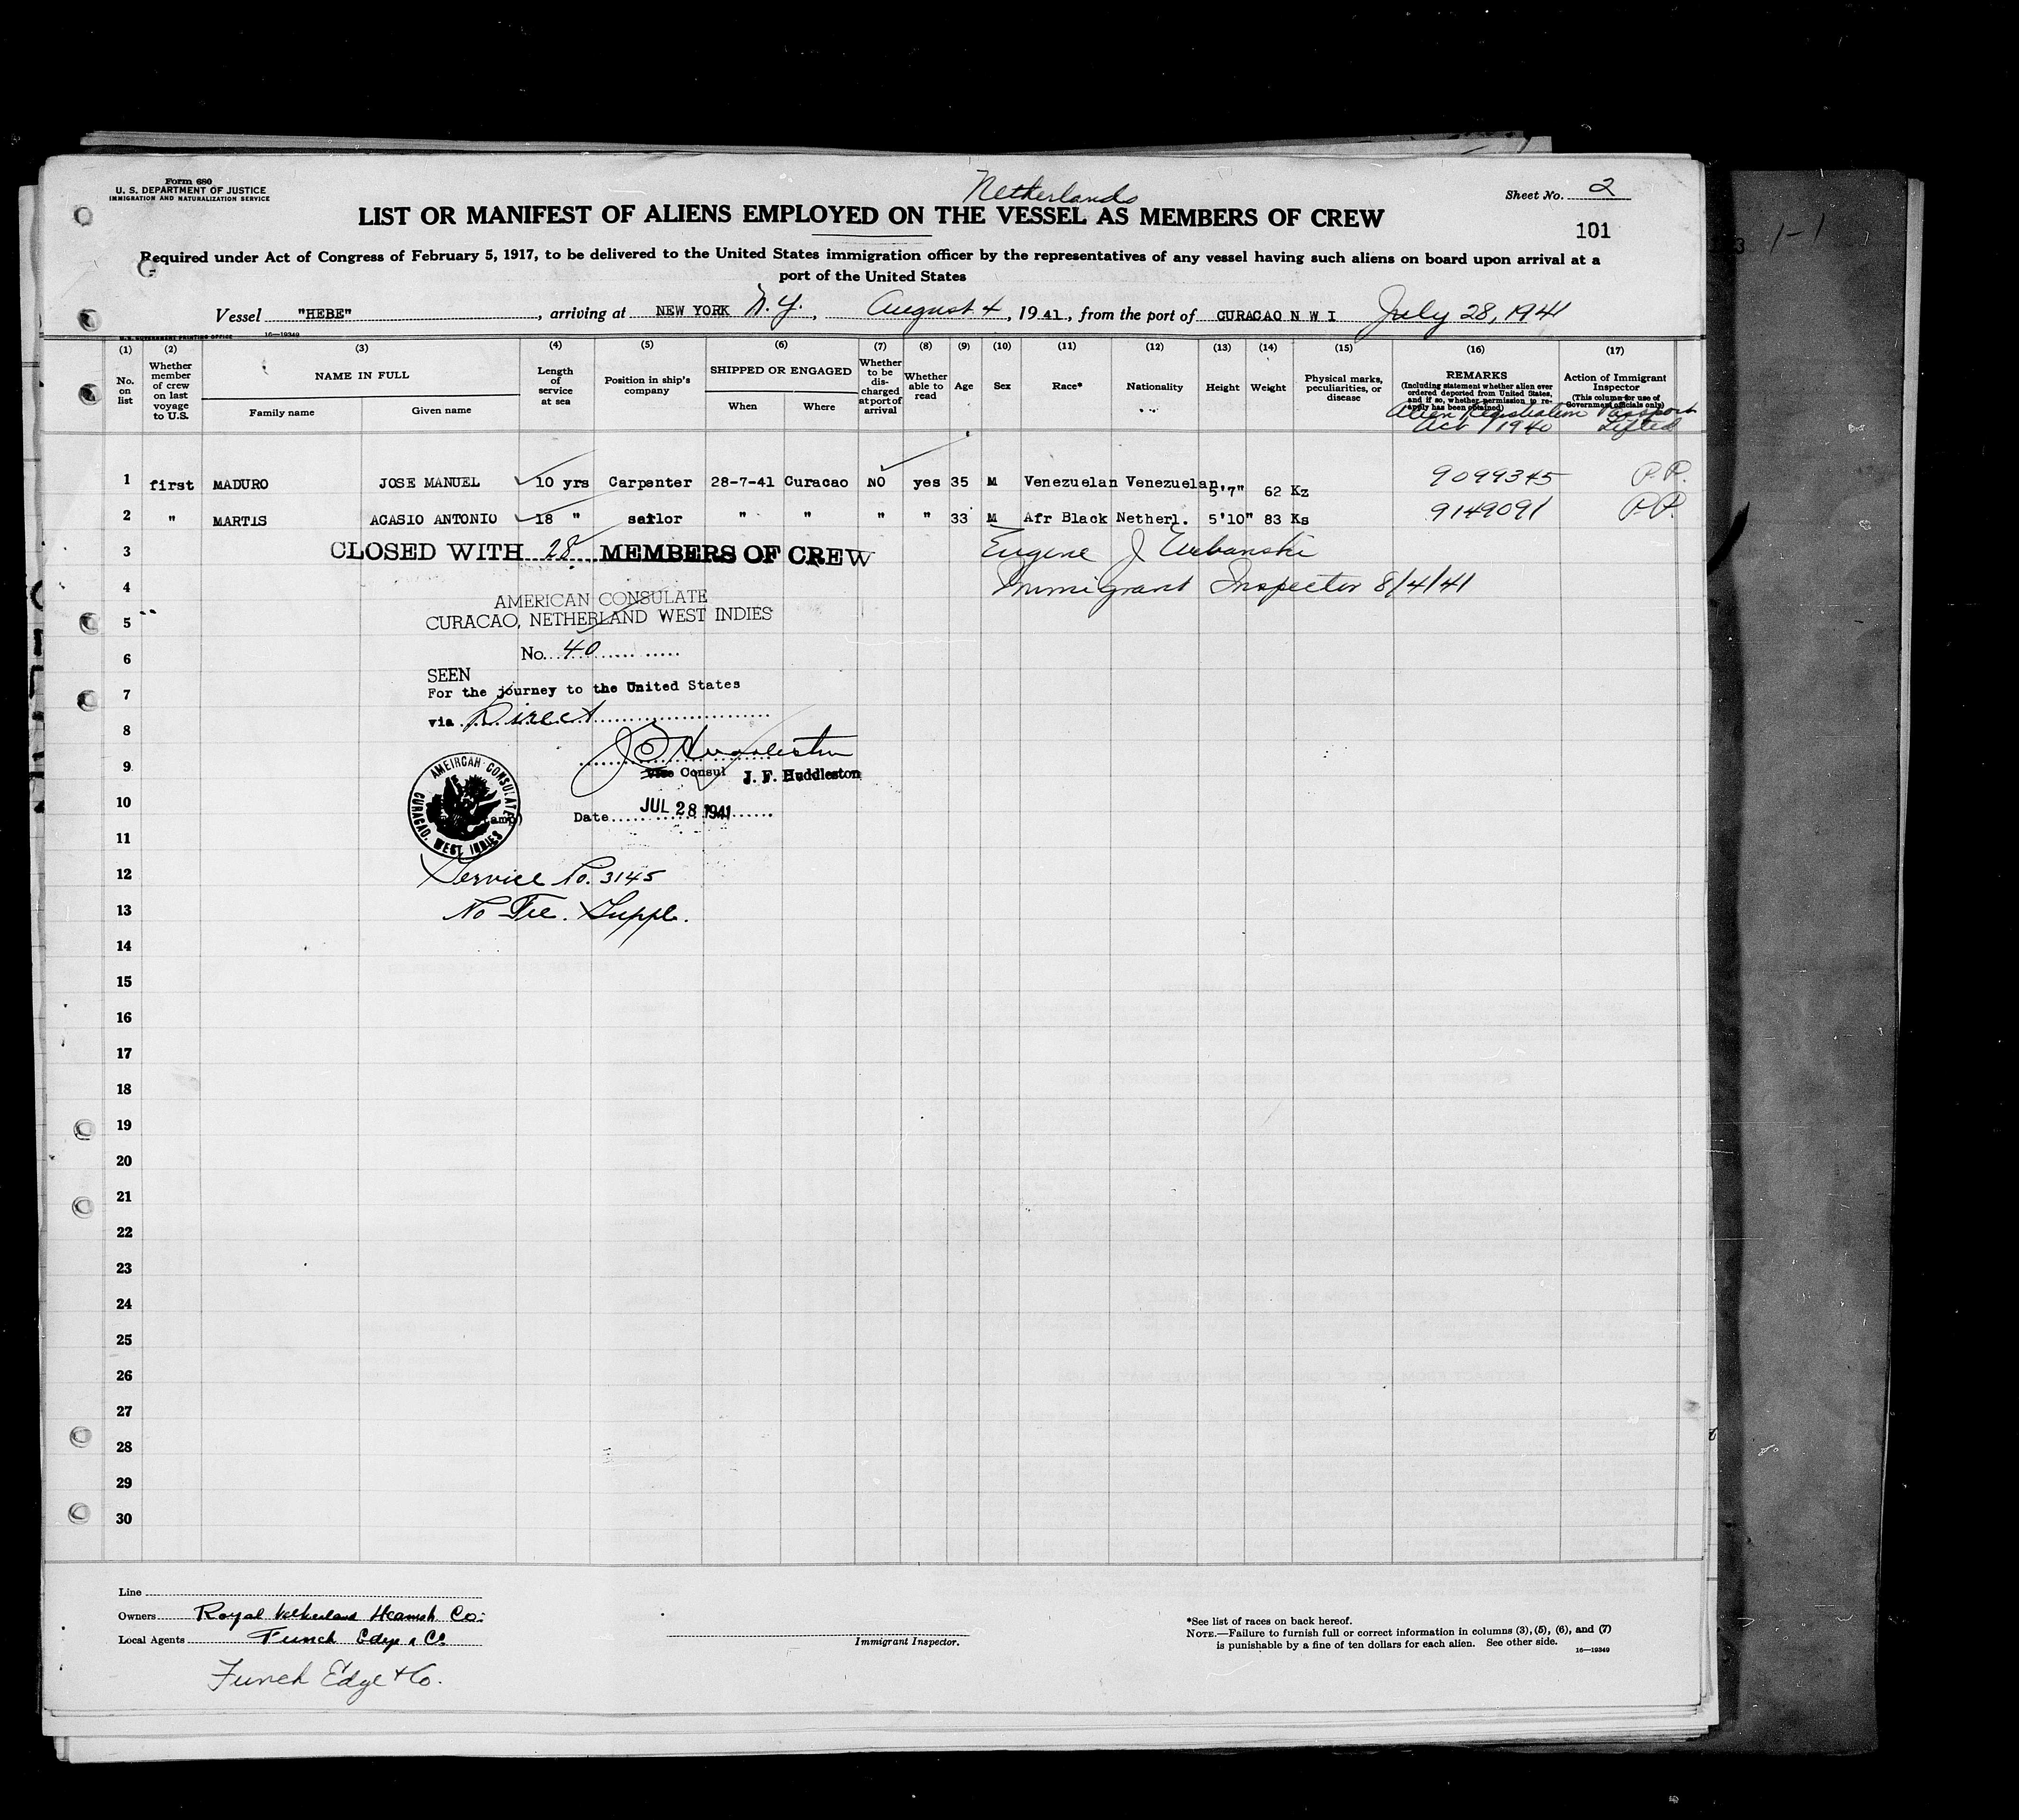 Form 680
U. S. DEPARTMENT OF JUSTICE
IMMIGRATION AND NATURALIZATION SERVICE
Netherlands
Sheet No. 2
LIST OR MANIFEST OF ALIENS EMPLOYED ON THE VESSEL AS MEMBERS OF CREW
101
Required under Act of Congress of February 5, 1917, to be delivered to the United States immigration officer by the representatives of any vessel having such aliens on board upon arrival at a
port of the United States
Vessel "HEBE", arriving at NEW YORK N.Y., August 4, 1941, from the port of CURACAO N W I July 28, 1941
U. S. GOVERNMENT PRINTING OFFICE 16—19349
(1) No. on list
(2) Whether member of crew on last voyage to U.S.
(3) NAME IN FULL
Family name
Given name
(4) Length of service at sea
(5) Position in ship's company
(6) SHIPPED OR ENGAGED
When
Where
(7) Whether to be discharged at port of arrival
(8) Whether able to read
(9) Age
(10) Sex
(11) Race*
(12) Nationality
(13) Height
(14) Weight
(15) Physical marks, peculiarities, or disease
(16) REMARKS
(Including statement whether alien ever ordered deported from United States, and if so, whether permission to reapply has been obtained)
Alien Registration Act 1940
(17) Action of Immigrant Inspector
(This column for use of Government officials only)
Passport Lifted
1 first MADURO JOSE MANUEL 10 yrs Carpenter 28-7-41 Curacao NO yes 35 M Venezuelan Venezuelan 5'7" 62 Kz 9099345 P.P.
2 " MARTIS ACASIO ANTONIO 18 " sailor " " " " 33 M Afr Black Netherl. 5'10" 83 Ks 9149091 P.P.
3 CLOSED WITH 28 MEMBERS OF CREW Eugene J
4 Immigrant Inspector 8/4/41
AMERICAN CONSULATE
5 CURACAO, NETHERLAND WEST INDIES
6 No. 40
SEEN
7 For the journey to the United States
via Direct
8
9 Vice Consul J. F. Huddleston
AMEIRCAH CONSULATE CURACAO, WEST INDIES
10 Date JUL 28 1941
11
12 Service No. 3145
13 No Fee. Suppl.
14
15
16
17
18
19
20
21
22
23
24
25
26
27
28
29
30
Line
Owners Royal Netherland Steamsh. Co:
Local Agents Funch Edye & Co
Funch Edge & Co.
Immigrant Inspector.
*See list of races on back hereof.
NOTE.—Failure to furnish full or correct information in columns (3), (5), (6), and (7)
is punishable by a fine of ten dollars for each alien. See other side.
16—19349